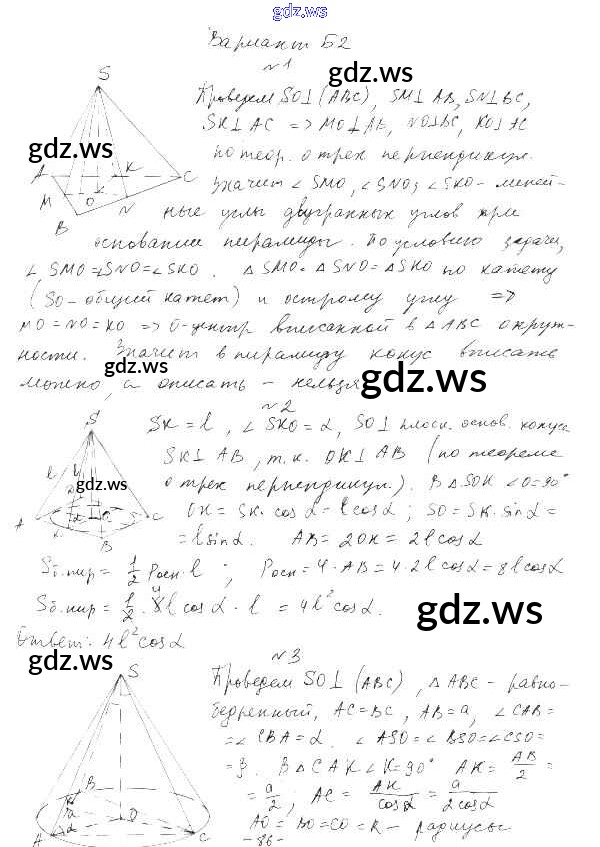 gdz.ws
Вариант Б2
№1
gdz.ws
S
Проведем SO⊥(ABC), SM⊥AB, SN⊥BC,
SK⊥AC => MO⊥AB, NO⊥BC, KO⊥AC
gdz.ws
по теор. о трех перпендикул.
A K C
M O
B N
Значит ∠SMO, ∠SNO, ∠SKO - линей-
ные углы двугранных углов при
основании пирамиды. По условию задачи,
gdz.ws
∠SMO=∠SNO=∠SKO. ΔSMO=ΔSNO=ΔSKO по катету
(SO - общий катет) и острому углу =>
MO=NO=KO => O-центр вписанной в ΔABC окруж-
ности. Значит в пирамиду конус вписать
можно, а описать - нельзя.
gdz.ws
№2
S
SK=l, ∠SKO=α, SO⊥плоск. основ. конуса
l
SK⊥AB, т.к. OK⊥AB (по теореме
gdz.ws
о трех перпендикул.). В ΔSOK ∠O=90°
A C
K O
B
OK=SK·cosα=lcosα; SO=SK·sinα=
=lsinα. AB=2OK=2lcosα
Sб.пир=1/2 Pосн·l; Pосн=4·AB=4·2lcosα=8lcosα
Sб.пир=1/2·8lcosα·l=4l²cosα.
gdz.ws
Ответ: 4l²cosα
gdz.ws
№3
S
Проведем SO⊥(ABC), ΔABC - равно-
бедренный, AC=BC, AB=a, ∠CAB=
=∠CBA=α. ∠ASO=∠BSO=∠CSO=
=β. В ΔCAK ∠K=90° AK=AB/2=
=a/2; AC=AK/cosα=a/2cosα
B
a
O
A α C
gdz.ws
AO=BO=CO=R - радиусы
-86-